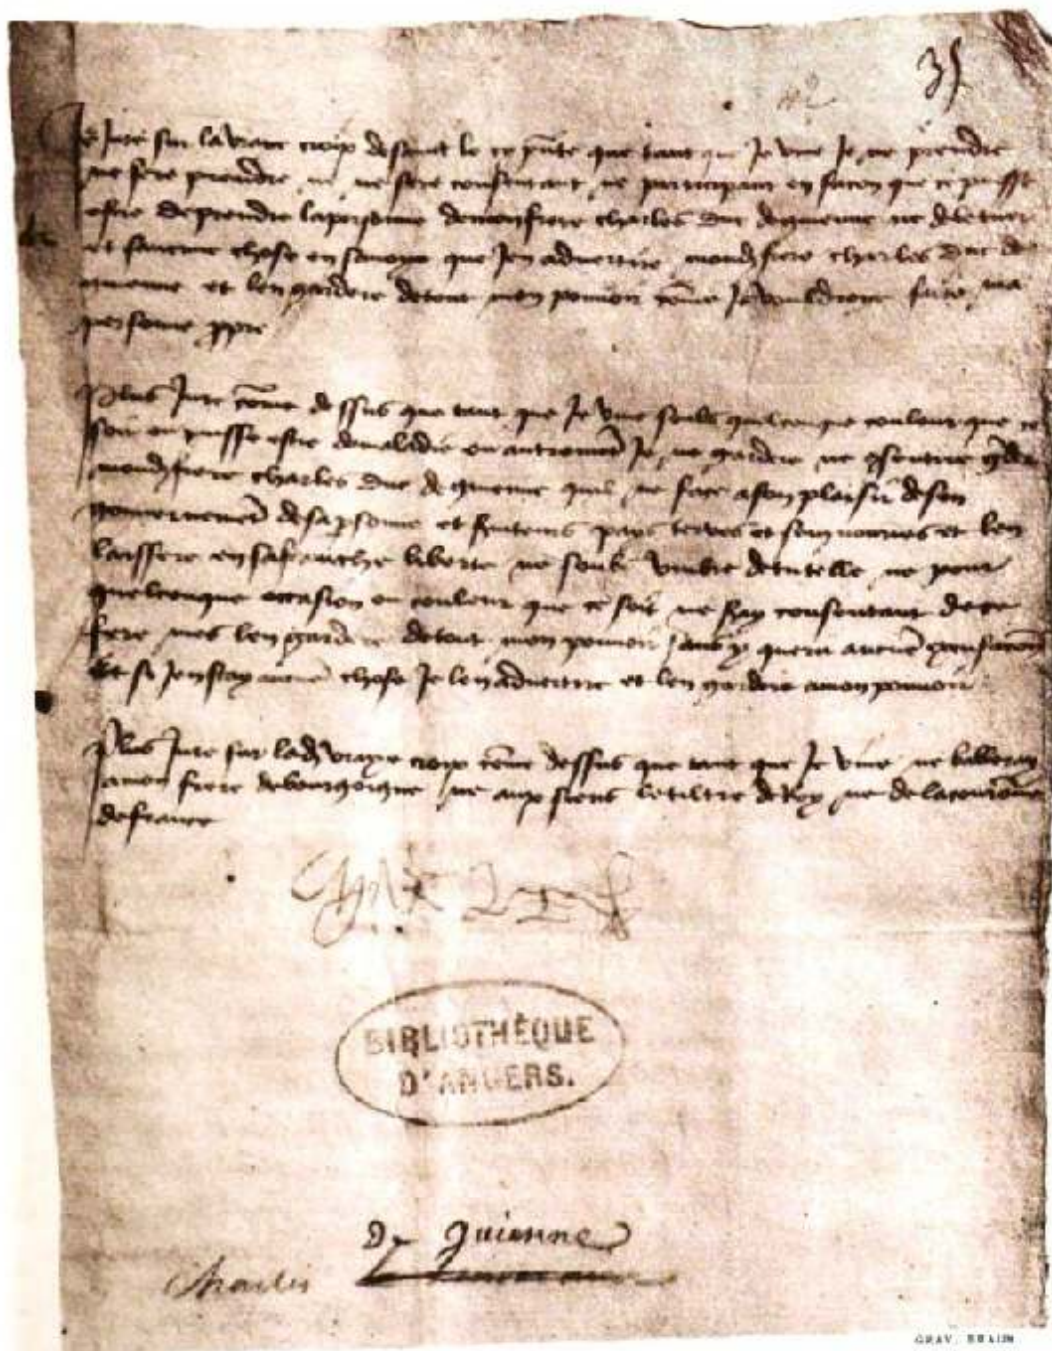 35
Je Jure sur la vraye croix de sainct le cy pñte que tant que Je vive Je ne prendre
ne fere prendre ne ne sere consentant ne participant en facon que ce puisse
estre de prendre la personne de mon frere charles duc de guienne ne de le tuer
et si aucune chose en scavoye que Jen advertire mond frere charles duc de
guienne et len gardere de tout mon povoir cõme Je vouldroye faire ma
personne ppre
Plus Jure cõme dessus que tant que Je vive soubz quelconque couleur que ce
soit ou puisse estre de maladie ou autremẽt Je ne gardere ne
mond frere charles duc de guienne quil ne face a son plaisir de son
gouvernemẽt de sa psonne et pays terres et seigneuries et len
laissere en sa franche liberte ne soubz umbre de tutelle ne pour
quelconque occasion ou couleur que ce soit ne seray consentant de ce
fere mes len gardere de tout mon povoir sans y querir aucune
Et si Jen scay aucune chose Je len advertire et len gardere a mon povoir
Plus Jure sur lad vraye croix cõme dessus que tant que Je vive ne bailleray
a mon frere de bourgoigne ne aux siens le tiltre de Roy ne de la couronne
de france
BIBLIOTHÈQUE
D'ANGERS.
de Guienne
Charles
GRAV.